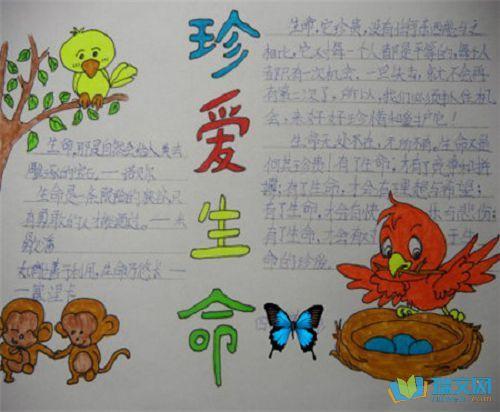 珍
爱
生
命
生命,它珍贵,没有任何东西能与之
相比,它对每一个人都是平等的,每个人
都只有一次机会,一旦失去,就不会再
有第二次了。所以,我们必须抓住机
会,来好好珍惜和爱护它!
生命无处不在,无所不有,生命不是
何其珍贵!有了生命,才有了竞争和拼
搏;有了生命,才会有理想与希望;
有了生命,才会有快 乐与悲伤;
有了生命,才会有 于生
命的珍爱。
生命,那是自然会给人类去
雕琢的宝石——诺贝尔
生命是一条艰险的峡谷,只
有勇敢的人才能通过。——米
歇潘
如果善于利用,生命乃悠长——
——塞涅卡
探文网